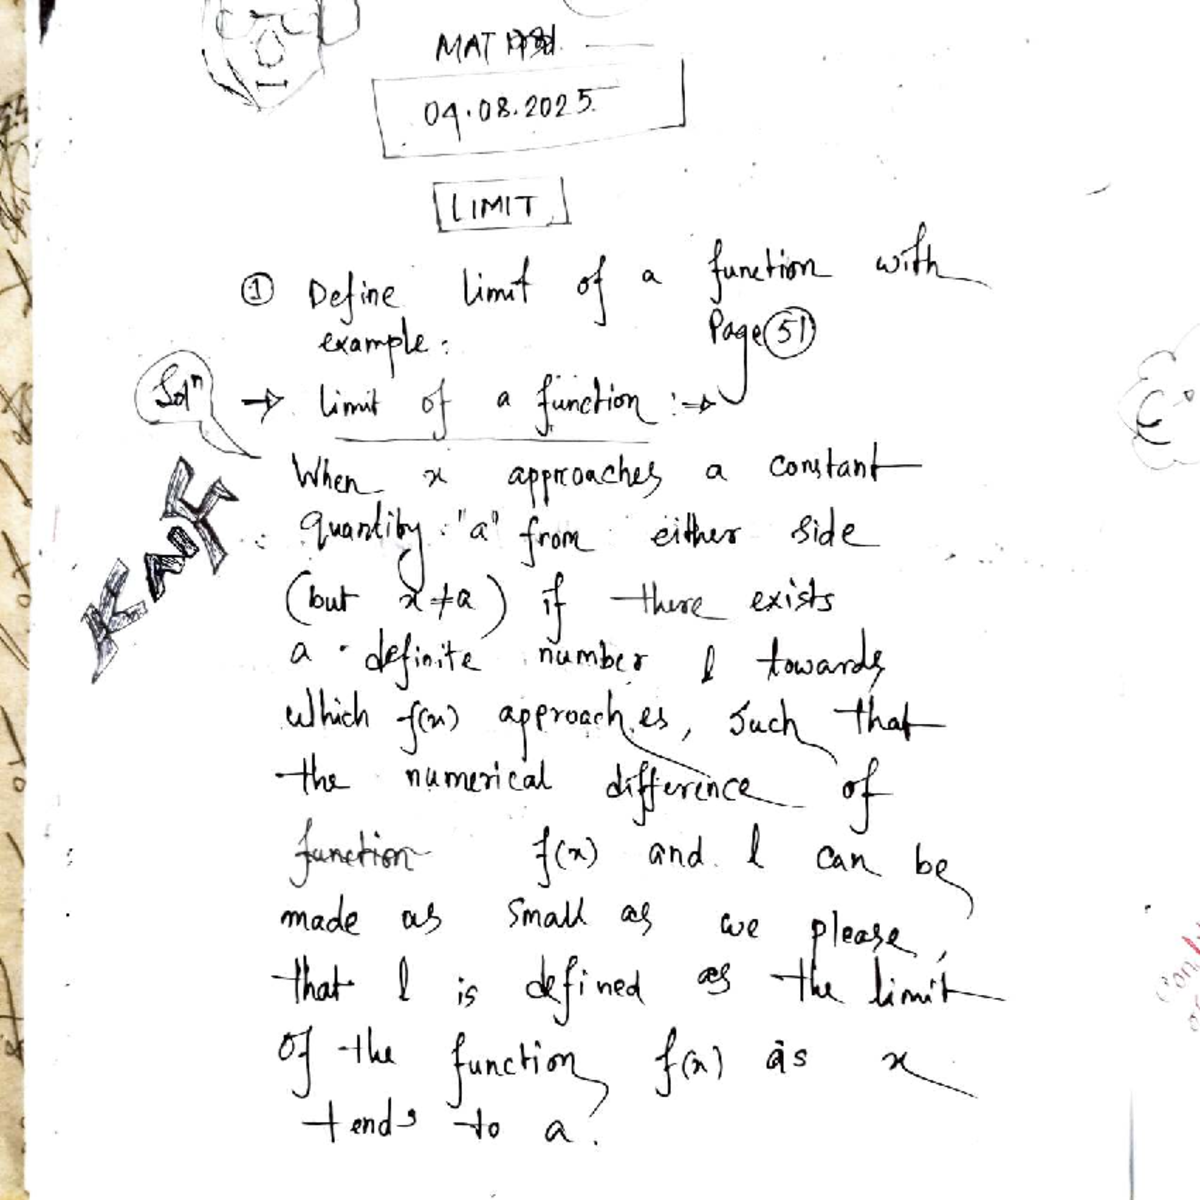 MAT
04.08.2025
LIMIT
① Define limit of a function with
example:
Page 51
Solⁿ → limit of a function :→
When x approaches a constant
quantity "a" from either side
(but x≠a) if there exists
a definite number l towards
which f(x) approaches, such that
the numerical difference of
function f(x) and l can be
made as small as we please,
that l is defined as the limit
of the function f(x) as x
tends to a.